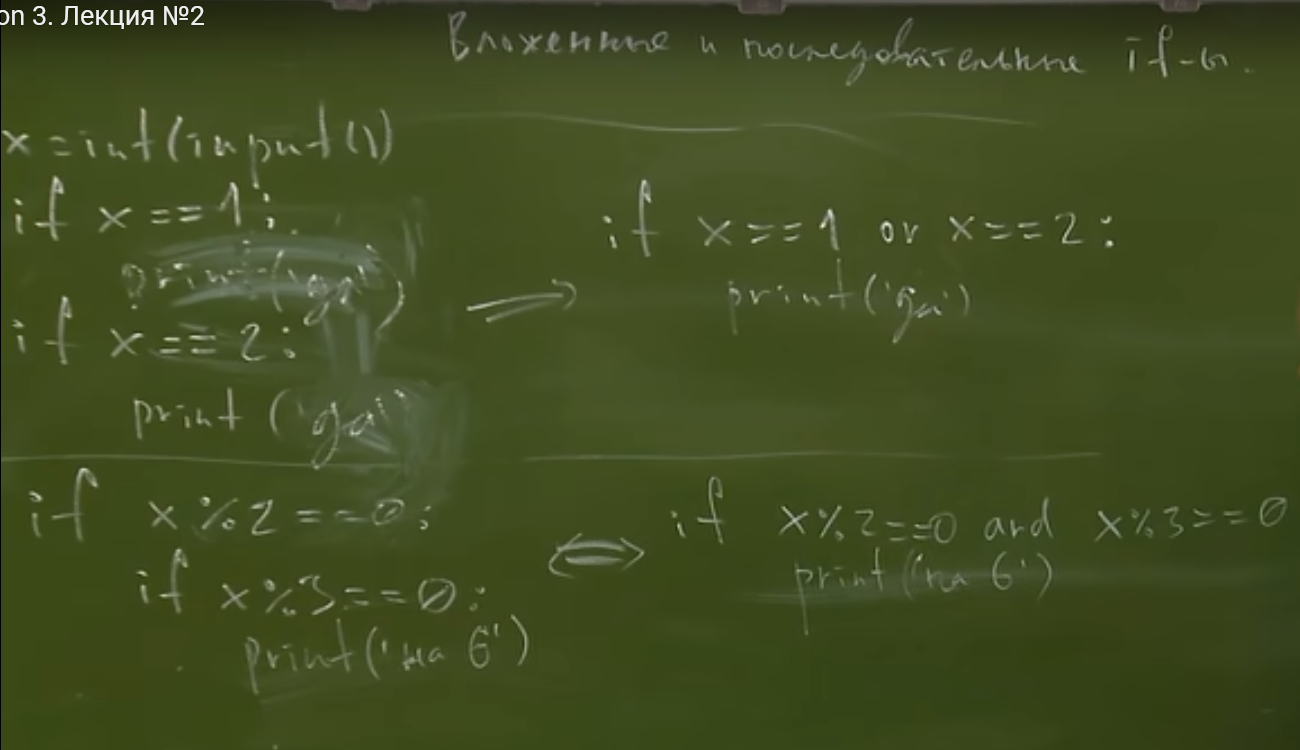 on 3. Лекция №2
Вложенные и последовательные if-ы.
x=int(input())
if x==1:
print('да')
if x==2:
print('да')
if x==1 or x==2:
print('да')
if x%2==0:
if x%3==0:
print('на 6')
if x%2==0 and x%3==0
print('на 6')